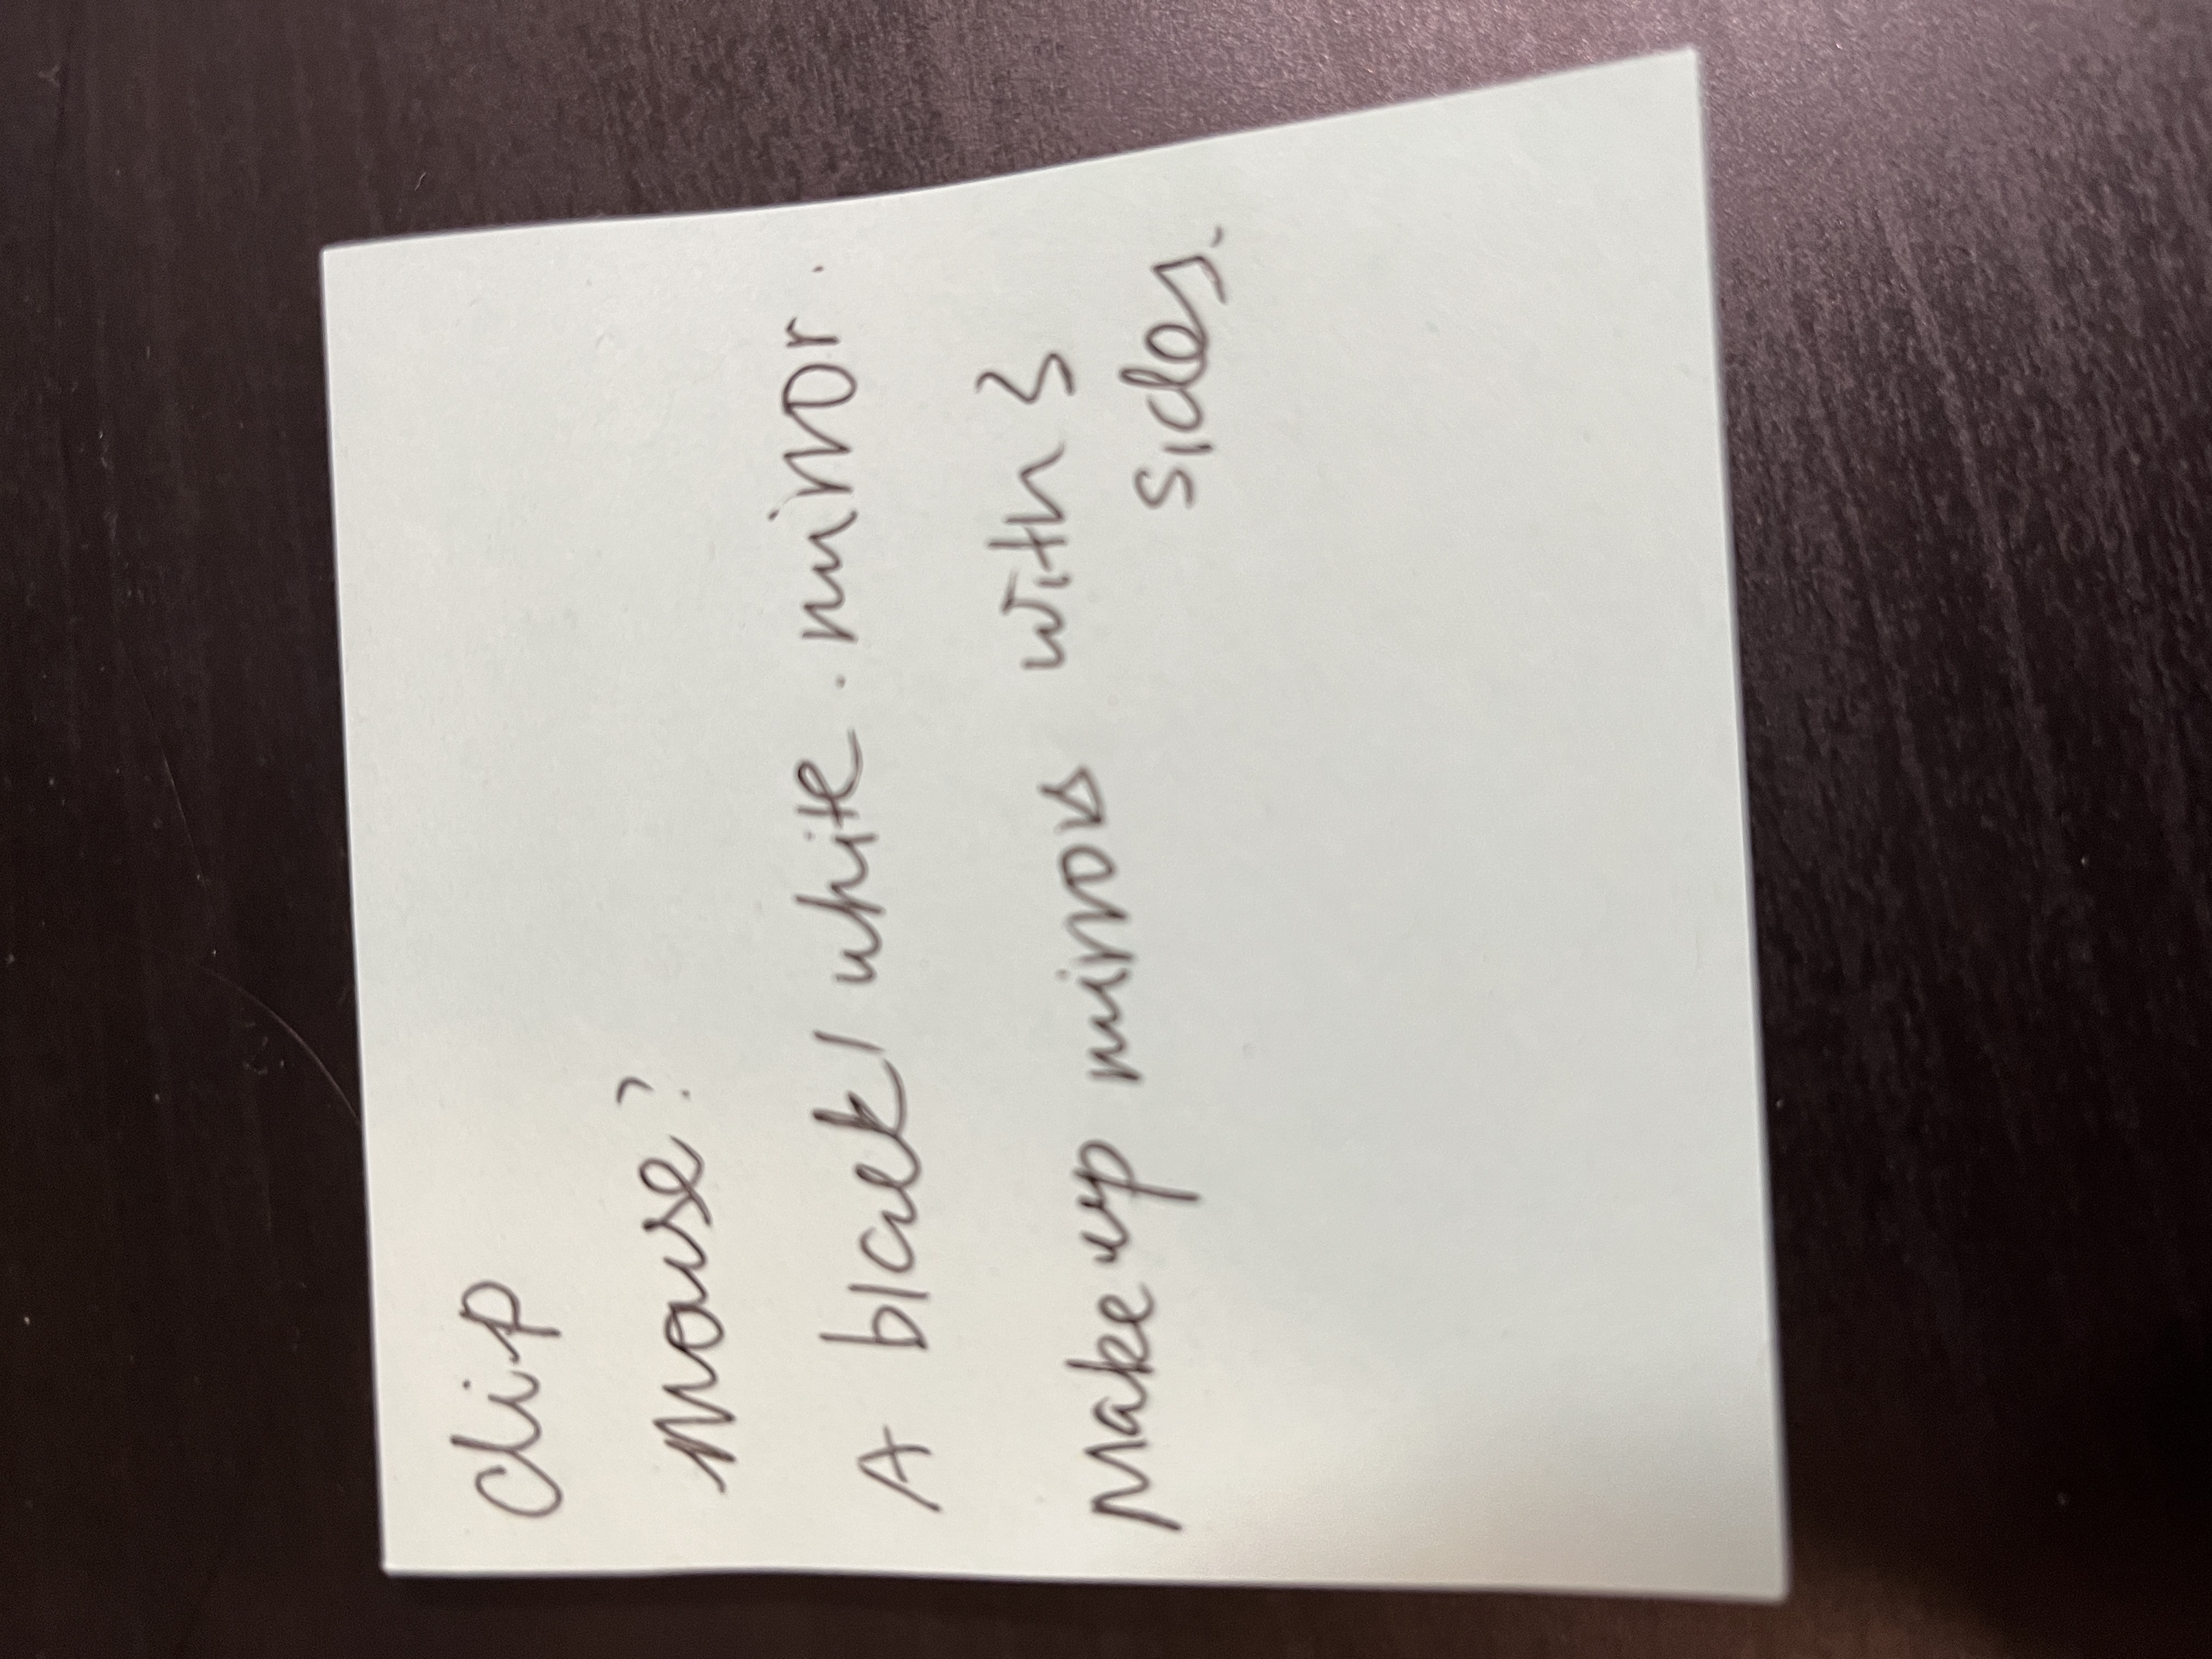 clip
Mouse?
A black/white. mirror.
Makeup mirrors with 3
sides.